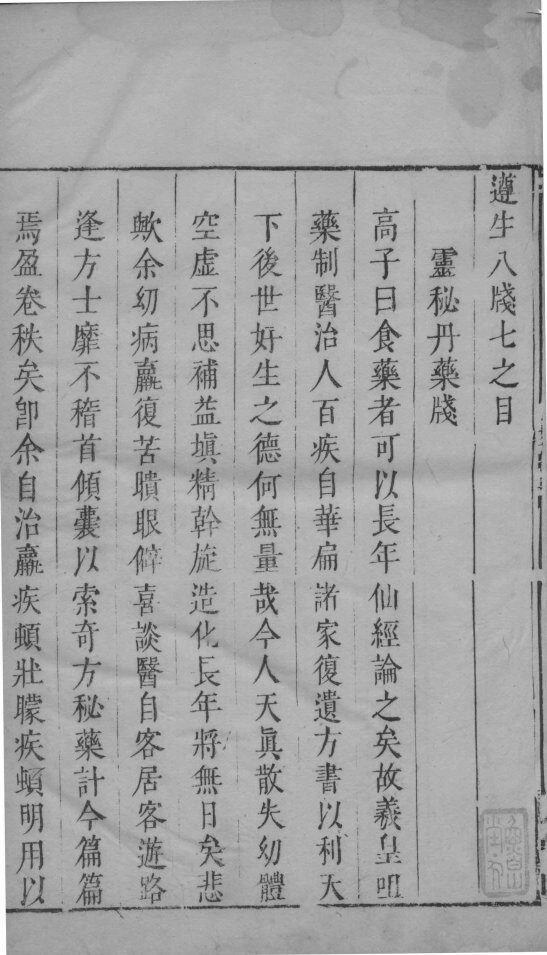 遵生八牋七之目
靈秘丹藥牋
高子曰食藥者可以長年仙經論之矣故羲皇咀
藥制醫治人百疾自華扁諸家復遺方書以利天
下後世好生之德何無量哉今人天眞散失幼體
空虛不思補益塡精斡旋造化長年將無日矣悲
歟余幼病羸復苦瞶眼僻喜談醫自客居客遊路
逢方士靡不稽首傾囊以索奇方秘藥計今篇篇
焉盈卷秩矣卽余自治羸疾頓壯朦疾頓明用以